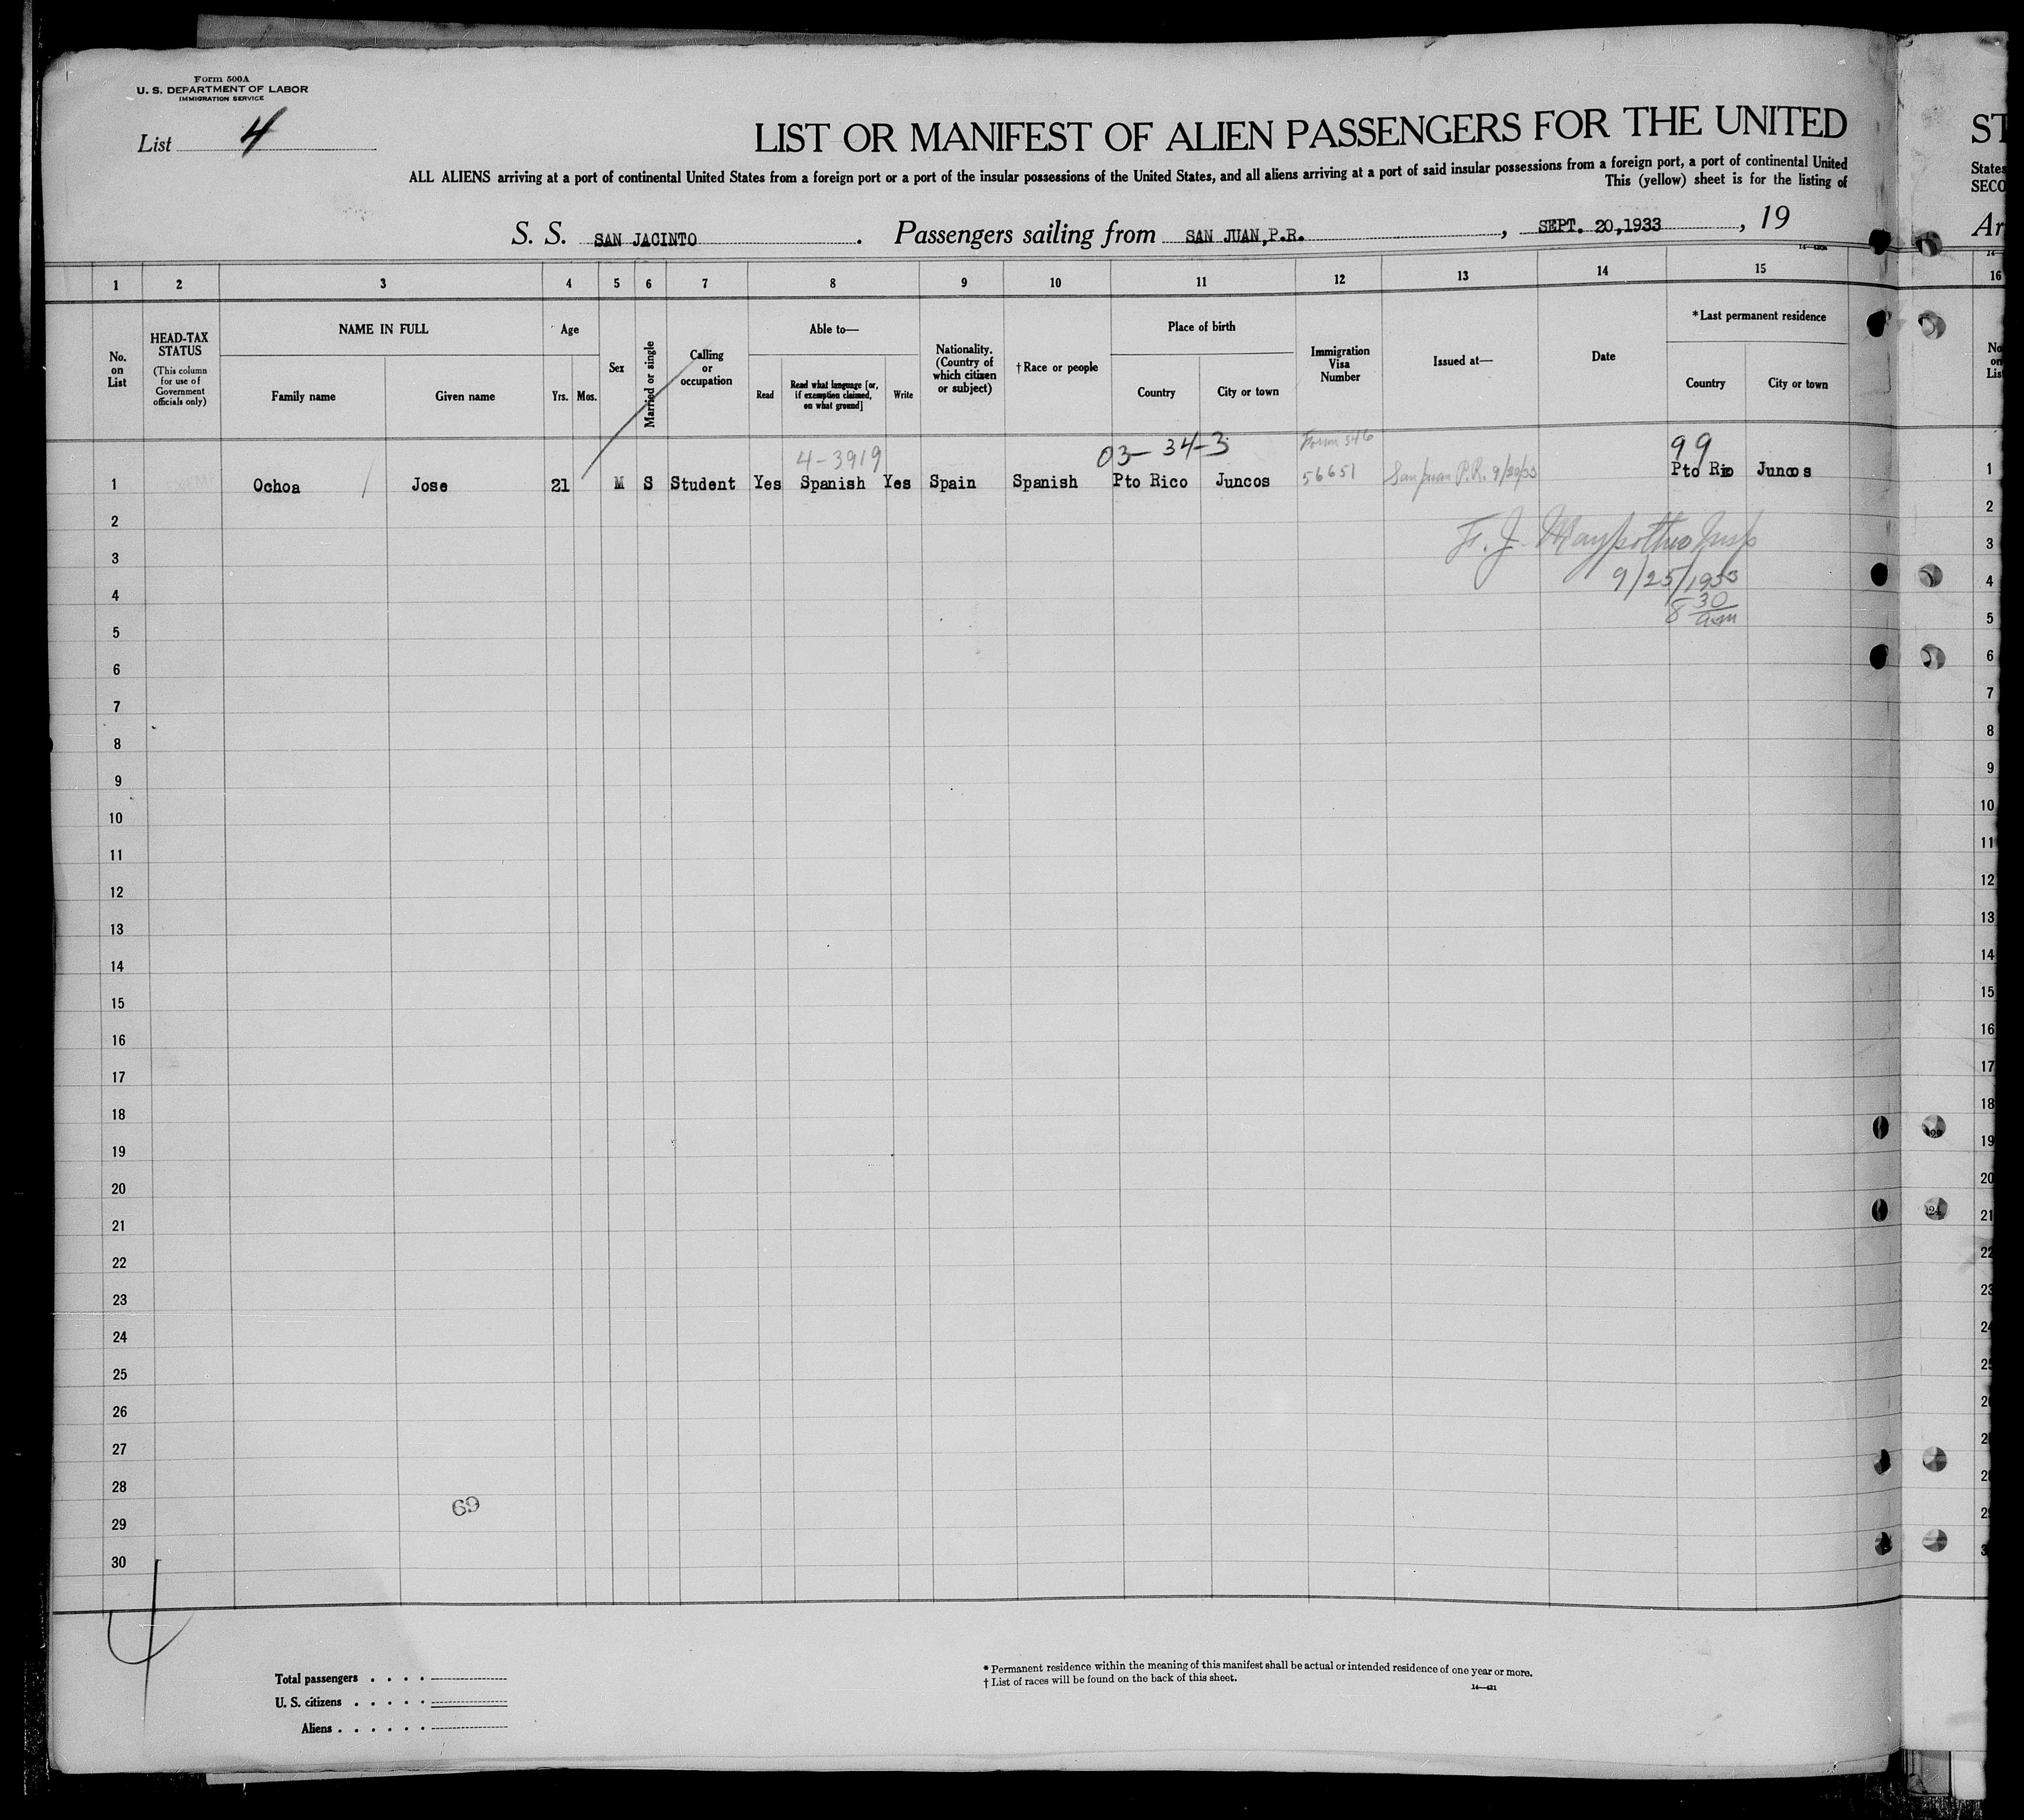 Form 500A
U. S. DEPARTMENT OF LABOR
IMMIGRATION SERVICE
List 4
LIST OR MANIFEST OF ALIEN PASSENGERS FOR THE UNITED
ST
ALL ALIENS arriving at a port of continental United States from a foreign port or a port of the insular possessions of the United States, and all aliens arriving at a port of said insular possessions from a foreign port, a port of continental United
States
This (yellow) sheet is for the listing of
SECO
S. S. SAN JACINTO . Passengers sailing from SAN JUAN,P.R. , SEPT. 20,1933 , 19
Ar
1 2 3 4 5 6 7 8 9 10 11 12 13 14 15
16
No. on List
HEAD-TAX STATUS
(This column for use of Government officials only)
NAME IN FULL
Family name Given name
Age
Yrs. Mos.
Sex
Married or single
Calling or occupation
Able to—
Read
Read what language [or, if exemption claimed, on what ground]
Write
Nationality. (Country of which citizen or subject)
† Race or people
Place of birth
Country City or town
Immigration Visa Number
Issued at—
Date
* Last permanent residence
Country City or town
No. on List
4-3919 03-34-3 Form 346 99
1 Ochoa / Jose 21 M S Student Yes Spanish Yes Spain Spanish Pto Rico Juncos 56651 San Juan P.R. 9/20/33 Pto Rio Juncos 1
2 2
3 3
9/25/1933
4 4
8 30 am
5 5
6 6
7 7
8 8
9 9
10 10
11 11
12 12
13 13
14 14
15 15
16 16
17 17
18 18
19 19
20 20
21 21
22 22
23 23
24 24
25 25
26
27
28
69
29
30
Total passengers . . . .
U. S. citizens . . . . .
Aliens . . . . . .
* Permanent residence within the meaning of this manifest shall be actual or intended residence of one year or more.
† List of races will be found on the back of this sheet.
14—421